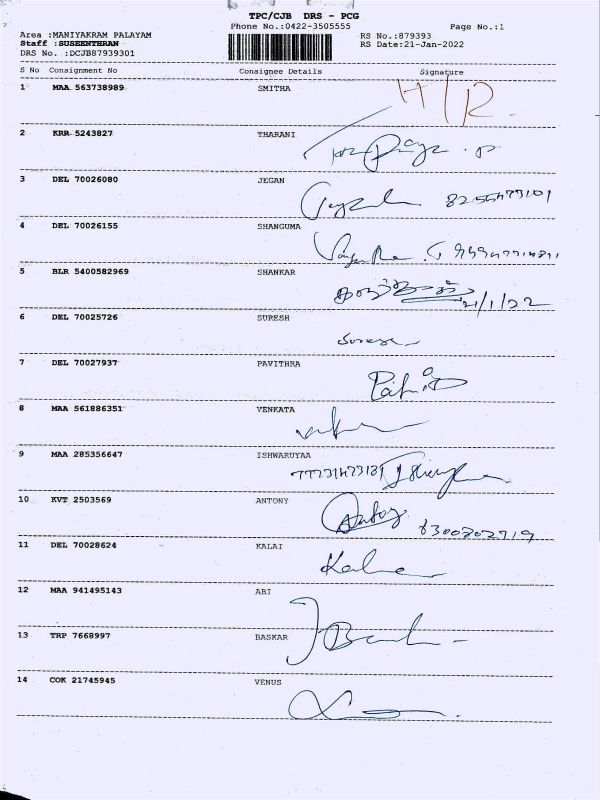 TPC/CJB DRS - PCG
Phone No.:0422-3505555 Page No.:1
Area :MANIYAKRAM PALAYAM RS No.:879393
Staff :SUSEENTHRAN RS Date:21-Jan-2022
DRS No. :DCJB87939301
S No Consignment No Consignee Details Signature
1 MAA 563738989 SMITHA
2 KRR 5243827 THARANI
3 DEL 70026080 JEGAN
4 DEL 70026155 SHANGUMA
5 BLR 5400582969 SHANKAR
21/1/22
6 DEL 70025726 SURESH
Suresh
7 DEL 70027937 PAVITHRA
8 MAA 561886351 VENKATA
9 MAA 285356647 ISHWARUYAA
10 KVT 2503569 ANTONY
Antony 6300302719
11 DEL 70028624 KALAI
12 MAA 941495143 ABI
13 TRP 7668997 BASKAR
14 COK 21745945 VENUS